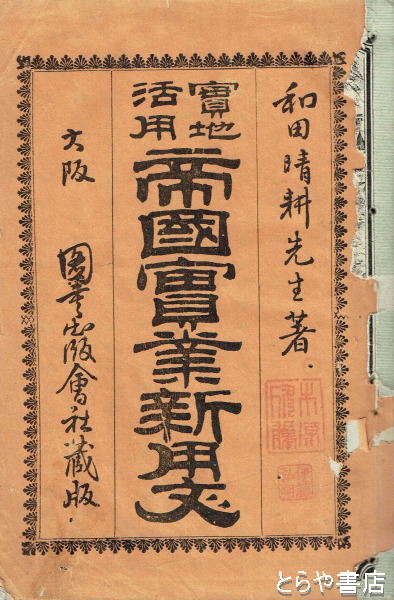 和田晴耕先生著.
實地
活用
帝國實業新用文
大阪 圖書出版會社藏版.
とらや書店